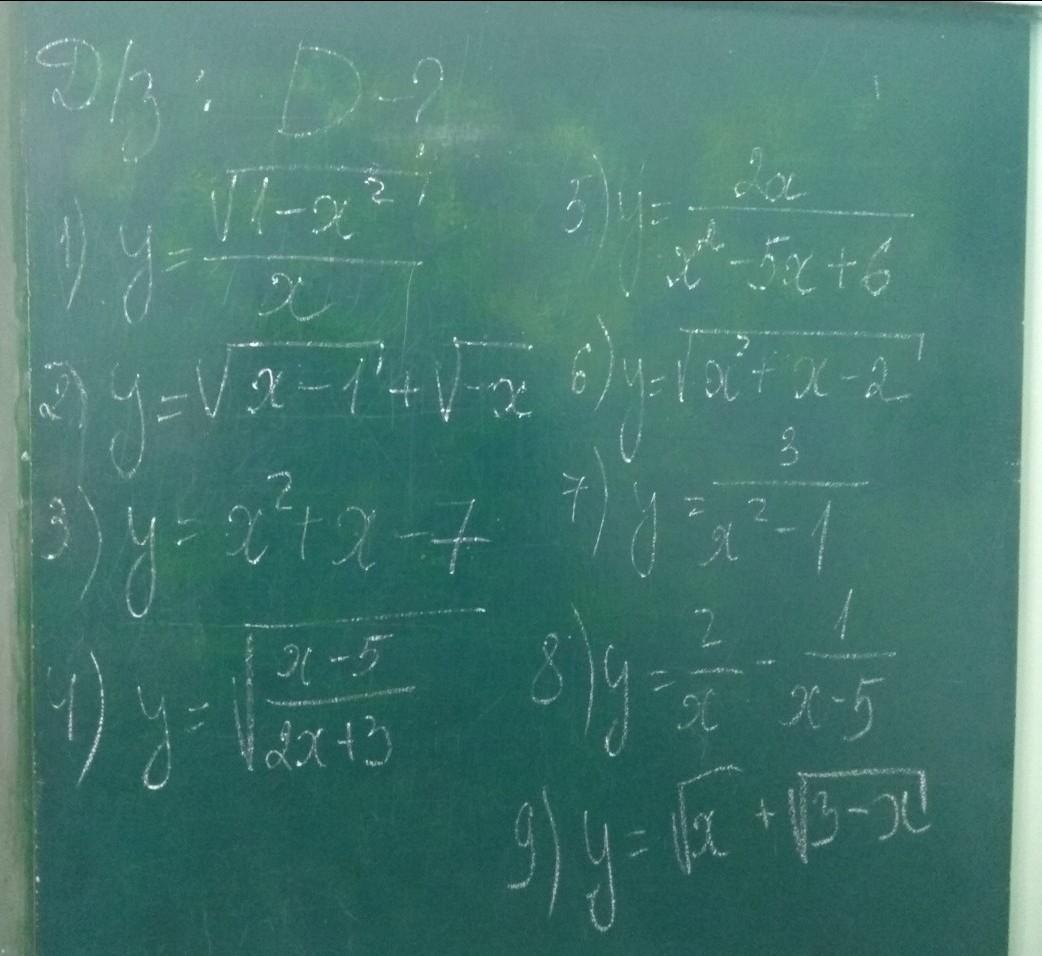 D/з: D - ?
1) y = √(1-x²) / x
2) y = √(x-1) + √(-x)
3) y = x² + x - 7
4) y = √((x-5)/(2x+3))
5) y = 2x / (x²-5x+6)
6) y = √(x²+x-2)
7) y = 3 / (x²-1)
8) y = 2/x - 1/(x-5)
9) y = √x + √(3-x)